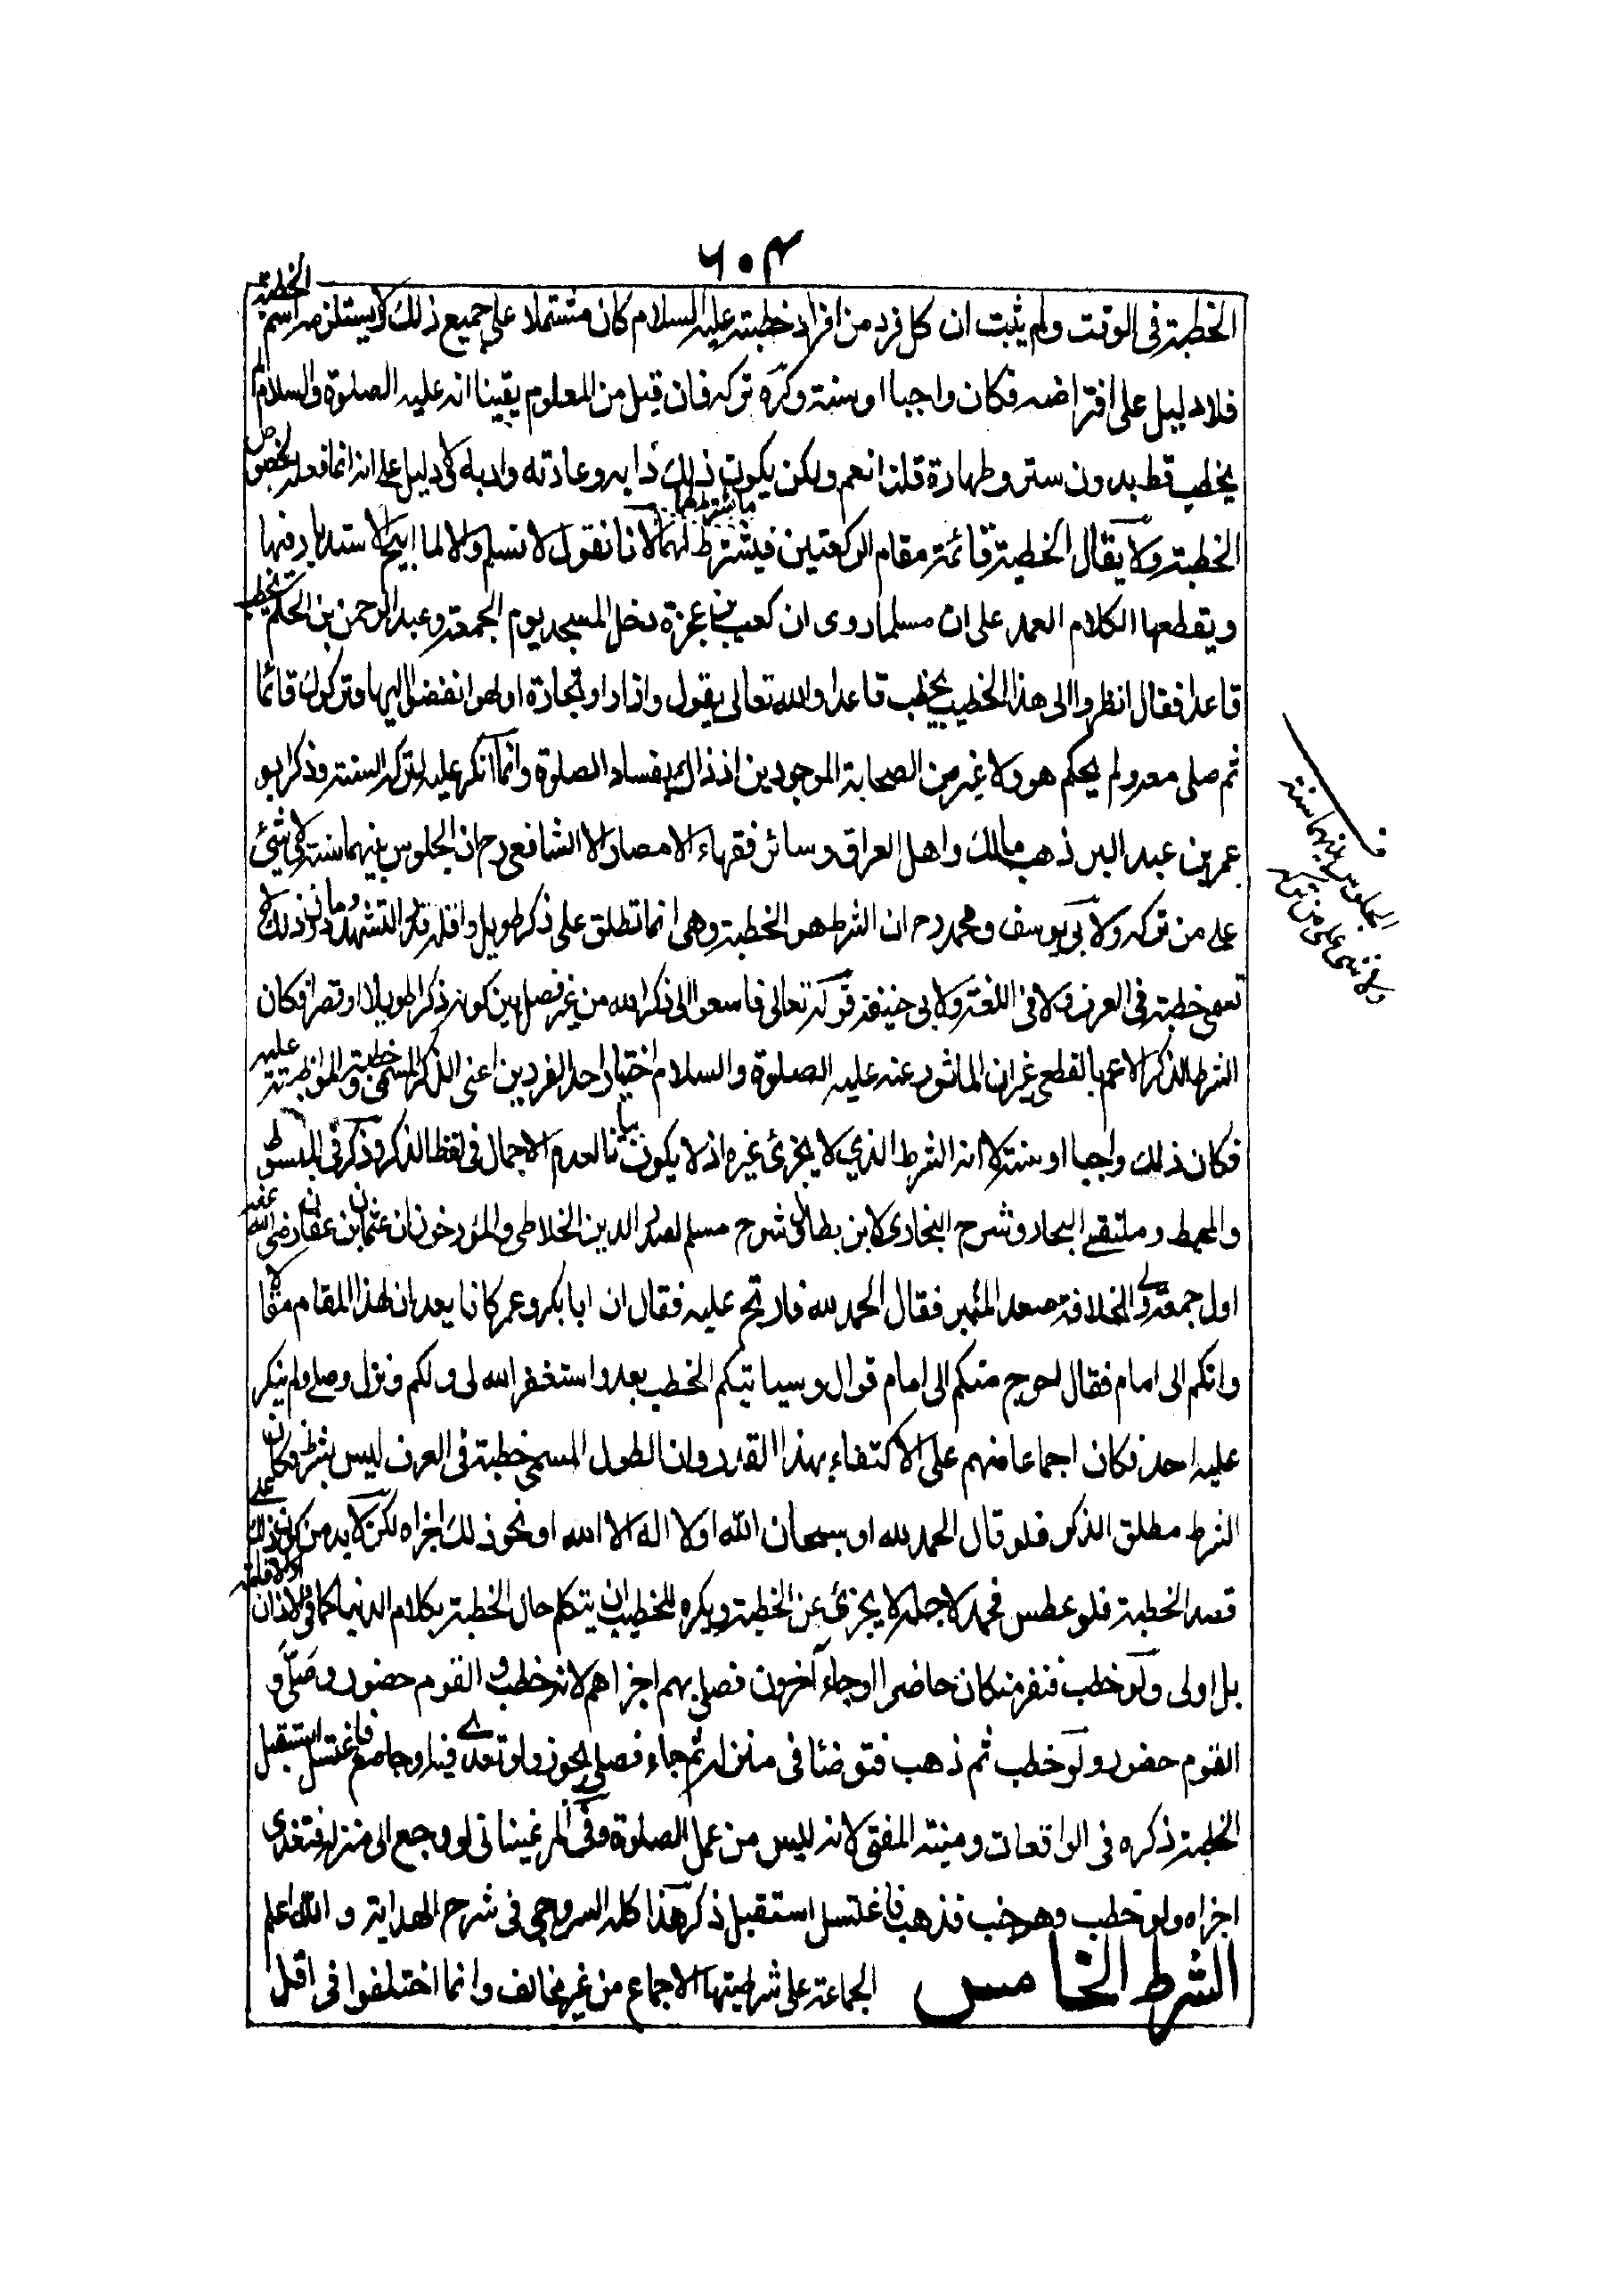 ٦٠٤
الخطبة فى الوقت ولم يثبت ان كل فرد من افراد خطبته عليه السلام كان مشتملا على جميع ذلك لا يستلزمه اسم الخطبة
فلا دليل على افتراضه فكان واجبا او سنة وكره تركه فان قيل من المعلوم يقينا انه عليه الصلوة والسلام لم
يخطب قط بدون ستر وطهارة قلنا نعم ولكن يكون ذلك دابه وعادته وادبه لا دليل على انه انما فعله لخصوص
الخطبة ولا يقال الخطبة قائمة مقام الركعتين فيشترط لها ما شترط لهما لانا نقول لا نسلم والا لما ابيح الاستدبار فيها
ويقطعها الكلام العمد على ان مسلما روى ان كعب بن عجزة دخل المسجد يوم الجمعة وعبد الرحمن بن الحكم يخطب
قاعدا فقال انظروا الى هذا الخطيب يخطب قاعدا والله تعالى يقول واذا راو تجارة او لهوا انفضوا اليها وتركوك قائما
ثم صلى معه ولم يحكم هو ولا غيره من الصحابة الموجودين اذ ذاك بفساد الصلوة وانما انكر عليه لتركه السنة وذكر ابو
عمر بن عبد البر ذهب مالك واهل العراق وسائر فقهاء الامصار الا الشافعى رح ان الجلوس بينهما سنة لا شئ
على من تركه ولابى يوسف ومحمد رح ان الشرط هو الخطبة وهى انما تطلق على ذكر طويل واقله قدر التشهد وما دون ذلك لا
تسمى خطبة فى العرف ولا فى اللغة ولابى حنيفة قوله تعالى فاسعوا الى ذكر الله من غير فصل بين كونه ذكرا طويلا او قصرا فكان
الشرط الذكر الاعم بالقطعى غير ان الماثور عنه عليه الصلوة والسلام اختيار احد الفردين اعنى الذكر المسمى خطبة والمواظبة عليه
فكان ذلك واجبا او سنة لا انه الشرط الذي لا يجزئ غيره اذ لا يكون بيانا لعدم الاجمال فى لفظ الذكر وذكر فى المبسوط
والمحيط وملتقى البحار وشرح البخارى لابن بطال وشرح مسلم لصدر الدين الخلاطى والمؤرخون ان عثمان بن عفان رضى الله عنه
اول جمعة ولى الخلافة صعد المنبر فقال الحمد لله فارتج عليه فقال ان ابا بكر وعمر كانا يعدان لهذا المقام مقالا
وانكم الى امام فقال احوج منكم الى امام قوال وسياتيكم الخطب بعد واستغفر الله لى ولكم ونزل وصلى ولم ينكر
عليه احد فكان اجماعا منهم على الاكتفاء بهذا القدر وان الطول المسمى خطبة فى العرف ليس بشرط وكان
الشرط مطلق الذكر فلو قال الحمد لله او سبحان الله او لا اله الا الله او نحو ذلك اجزاه لكن لا بد من كون ذلك على
قصد الخطبة فلو عطس فحمد لاجله لا يجزئ عن الخطبة ويكره للخطيب ان يتكلم حال الخطبة بكلام الدنيا كما فى الاذان والاقامة
بل اولى ولو خطب فنفر من كان حاضرا او جاء آخرون فصلى بهم اجزاهم لانه خطب والقوم حضور وصلى و
القوم حضور ولو خطب ثم ذهب فتوضئا فى منزله ثم جاء فصلى يجوز ولو تغدى فيه او جامع فاغتسل استقبل
الخطبة ذكره فى الواقعات ومنية المفتى لانه ليس من عمل الصلوة وفى المرغينانى لو رجع الى منزله فتغدى
اجزاه ولو خطب وهو جنب فذهب فاغتسل استقبل ذكر هذا كله السروجى فى شرح الهداية والله اعلم
الشرط الخامس الجماعة على شرطيتها الاجماع من غير مخالف وانما اختلفوا فى اقل
ف
الجلوس بينهما سنة
ولا شئ على من تركه